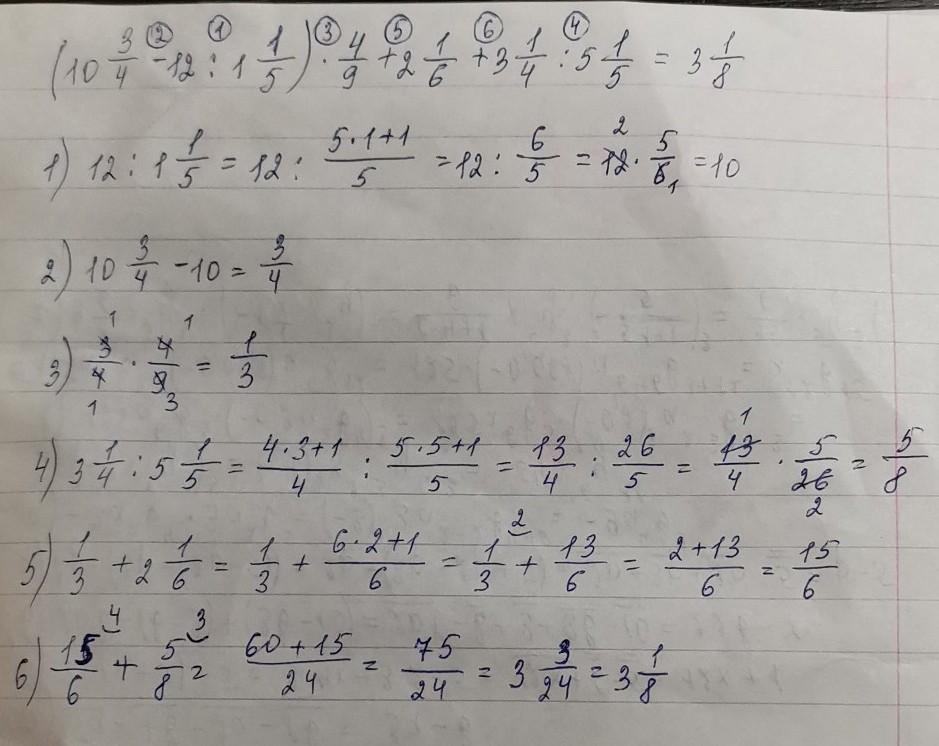 (10 3/4 ② - 12 ① : 1 1/5) ③ · 4/9 ⑤ + 2 1/6 ⑥ + 3 1/4 ④ : 5 1/5 = 3 1/8
1) 12 : 1 1/5 = 12 : (5·1+1)/5 = 12 : 6/5 = 12 2 · 5/6 1 = 10
2) 10 3/4 - 10 = 3/4
3) 3 1/4 1 · 4 1/9 3 = 1/3
4) 3 1/4 : 5 1/5 = (4·3+1)/4 : (5·5+1)/5 = 13/4 : 26/5 = 13 1/4 · 5/26 2 = 5/8
5) 1/3 + 2 1/6 = 1/3 + (6·2+1)/6 = 1/3 2 + 13/6 = (2+13)/6 = 15/6
6) 15/6 4 + 5/8 3 = (60+15)/24 = 75/24 = 3 3/24 = 3 1/8